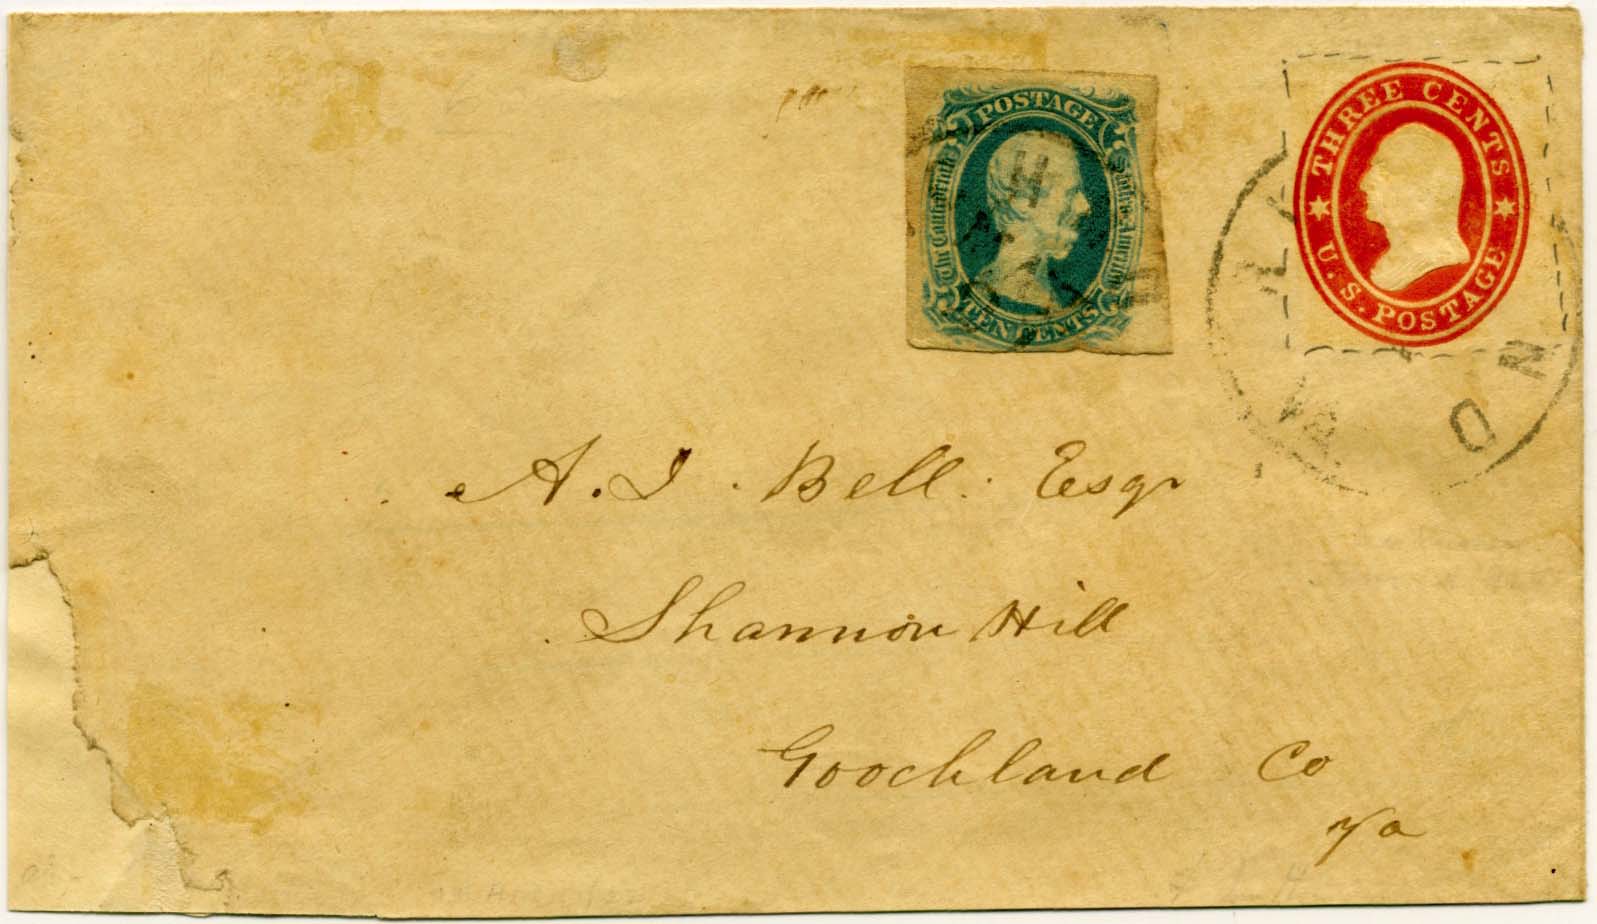 POSTAGE
The Confederate States of America
TEN CENTS
THREE CENTS
U.S. POSTAGE
VA.
A. J. Bell. Esqr
Shannon Hill
Goochland Co
Va